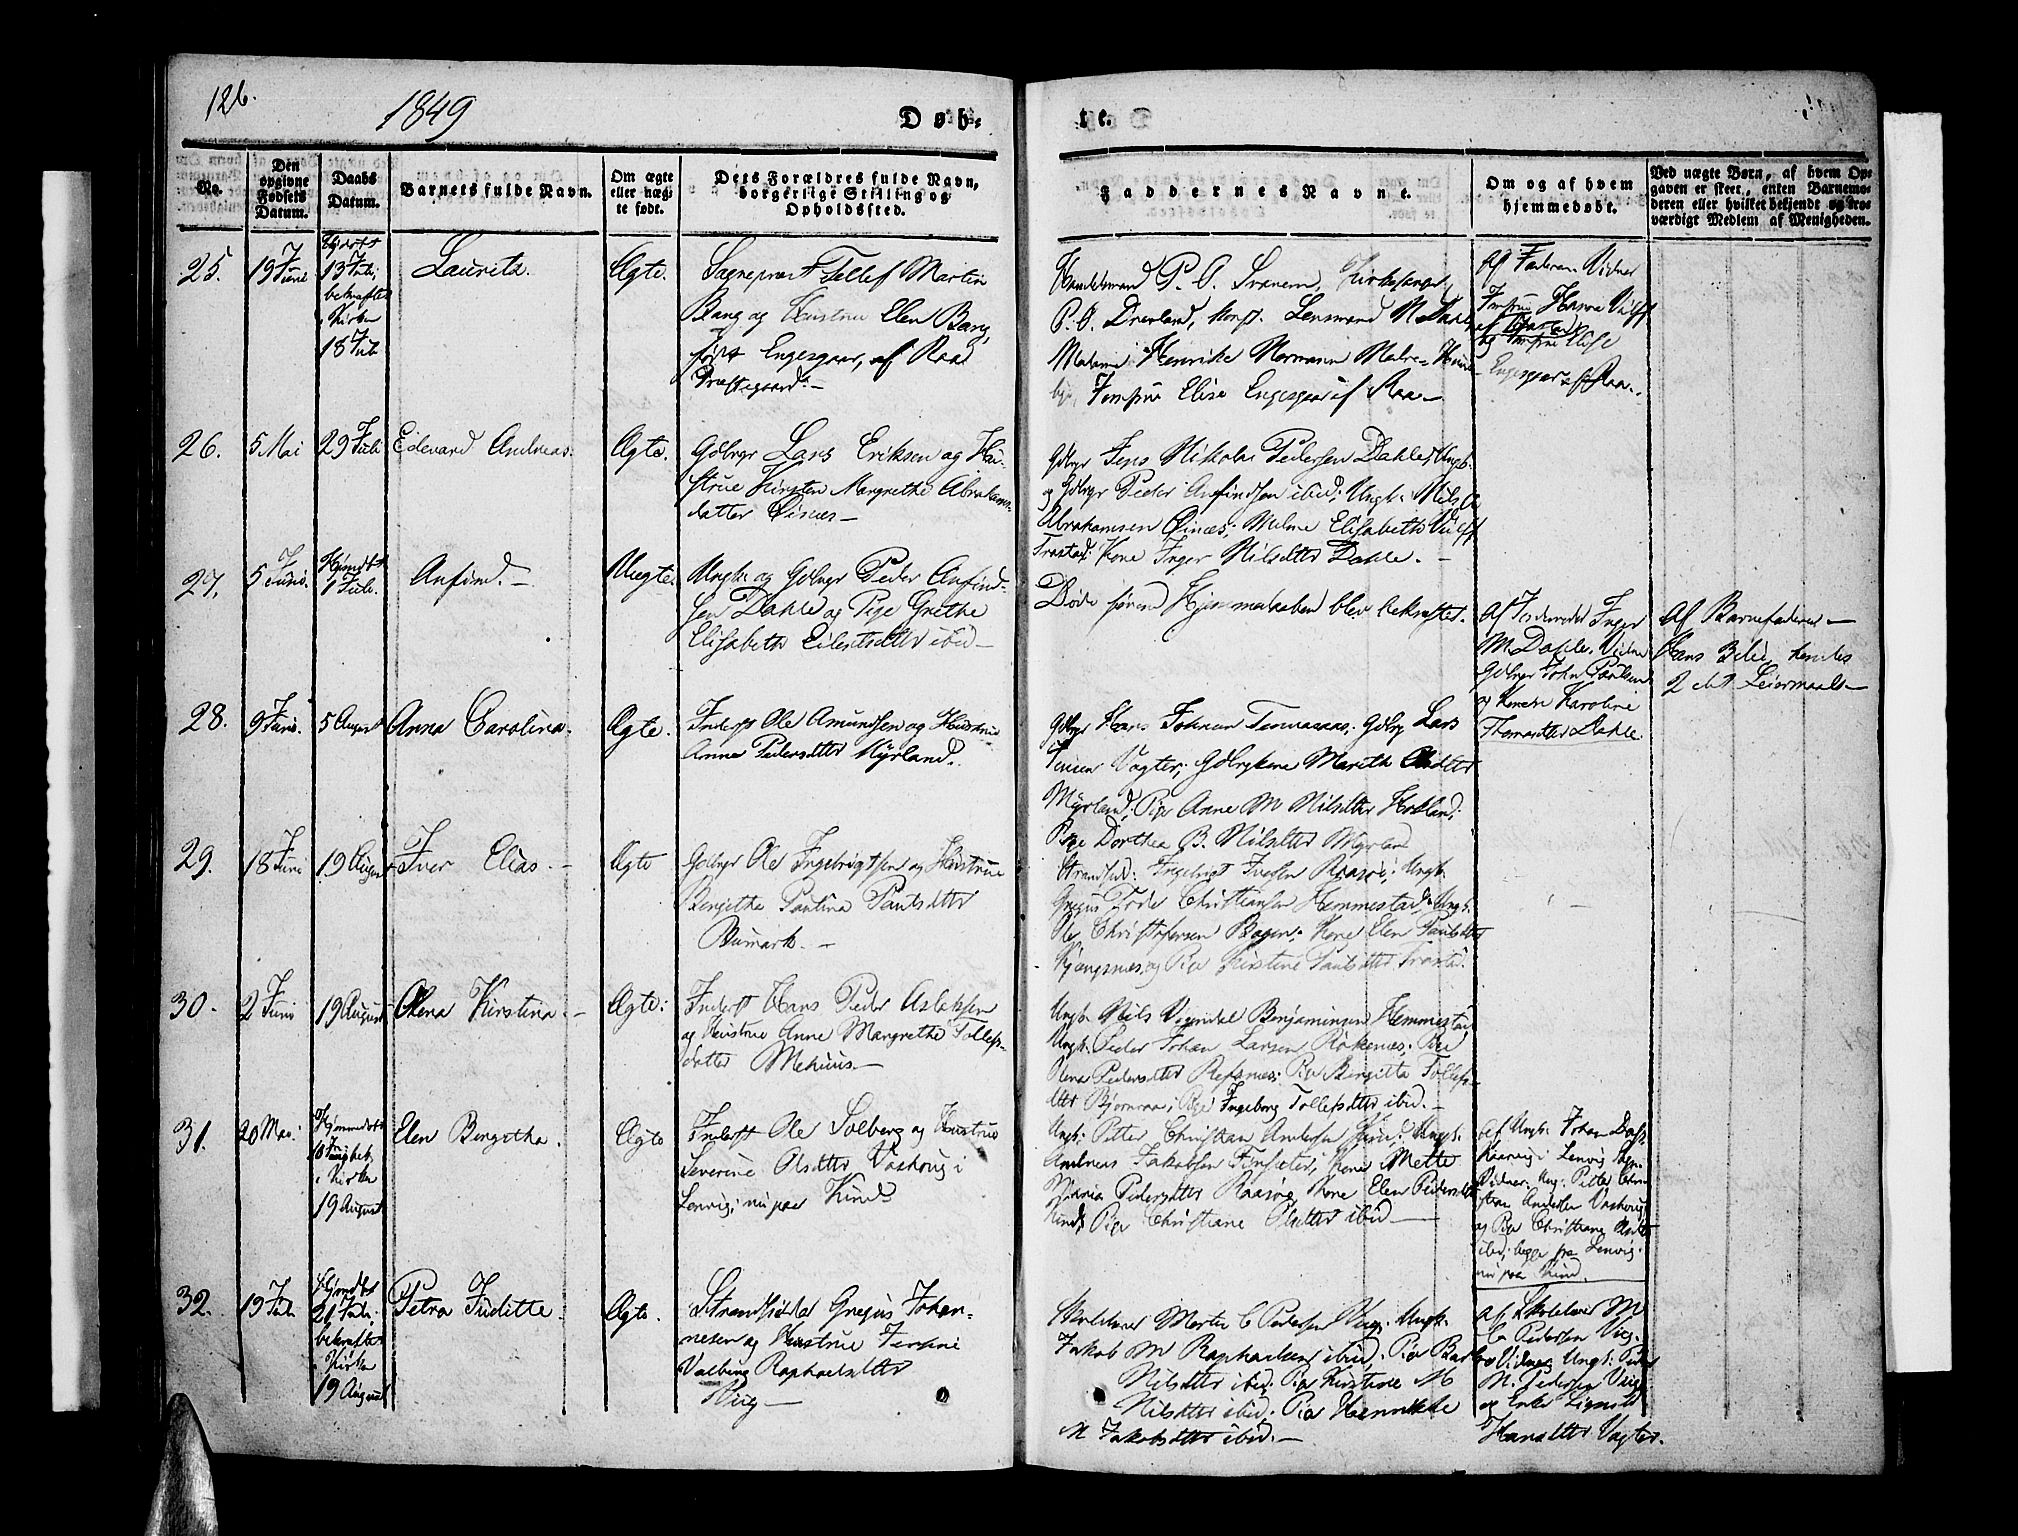 126.
1849
Døb-
te.
No.
Den opgivne Fødsels Datum.
Daabs Datum.
Barnets fulde Navn.
Om ægte eller uægte født.
Dets Forældres fulde Navn, borgerlige Stilling og Opholdssted.
Faddernes Navne.
Om og af hvem hjemmedøbt.
Ved uægte Børn, af hvem Opgaven er skeet, enten Barnemoderen eller hvilket bekjendt og troværdigt Medlem af Menigheden.
25.
19 Juni
13 Juli
bekræftet
i Kirken
18 Juli
Lauritz.
Ægte.
Sogneprest Tellef Martin
Bang og Hustrue Elen Bang,
født Engesgaar, af Raa
Præstegaard.
Handelsmand P. A. Svanem, Kirkesanger
P. O. Drevland, konst. Lensmand M
Madame Henrike Normann
Jomfrue Elise Engesgaar af Raa
af Faderen. Vidner
Jomfrue Hanna Wulff
og Jomfrue Elise
Engesgaar af Raa.
26.
5 Mai
29 Juli
Edevard Andreas.
Ægte.
Gdbrgr Lars Eriksen og Hu-
strue Kirsten Margrethe Abrahams-
datter
Gdbrgr Jens Nikolai Pedersen Dahle, Ungk.
og Gdbrgr Peder Anfindsen ibid; Ungk. Nils
Abrahamsen Elisabeth Wulff
Trastad; Kone Inger Nilsdtter Dahle.
27.
5 Juni.
Hjemdbt
1 Juli.
Anfind.
Uægte.
Ungk. og Gdbrgr Peder Anfind-
sen Dahle og Pige Grethe
Elisabeth Eilertsdtter ibid
Døde førend Hjemmedaaben blev bekræftet.
af Inger
M. Dahle. Vidner
Gdbrgr John Paulsen
og Konen Karoline
Thomasdtter Dahle.
af Barnefaderen
Hans 3die, hendes
2det Leiermaal
28.
9 Juni.
5 August
Anna Carolina.
Ægte.
Inderst Ole Amundsen og Hustrue
Anne Pedersdtter Myrland.
Gdbrgr Hans Johnsen Tennevaas; Gdbrgr Lars
Jensen Vagter; Gdbrgkone Mareth
Myrland; Pige Anne M Nilsdtter
Pige Dorthea B. Nilsdtter Myrland
29.
18 Juni
19 August
Iver Elias.
Ægte
Gdbrgr Ole Ingebrigtsen og Hustrue
Bergitha Paulina Paulsdtter
Bumark.
Strandsid: Ingebrigt Iversen Raasøe; Ungk.
Gregus Tode Christiansen Hemmestad; Ungk.
Ole Christophersen Kone Elen Paulsdtter
Kjengsnæs, og Pige Kirstine Paulsdtter Trastad.
30.
2 Juni
19 August
Olena Kirstina.
Ægte:
Inderst Hans Peder Aslaksen
og Hustrue Anne Margrethe Tollefs-
datter Mehuus.
Ungk. Nils Benjaminsen Hemmestad
Ungk. Peder Johan Larsen Røkenes; Pige
Olena Pedersdtter Refsnæs; Pige Bergitta Tollefs-
dtter Bjørnraa; Pige Ingeborg Tollefsdtter ibid.
31.
20 Mai
Hjemmedøbt
10 Juni bek.
i Kirken
19 August
Elen Bergitha.
Ægte
Inderst Ole Solberg og Hustrue
Severine Olsdtter Vaskoug i
Lenvig; nu paa Kind.
Ungk: Petter Christian Andersen Ungk.
Andreas Jakobsen Finsæter; Kone Mette
Maria Pedersdtter Raasøe; Kone Elen Pedersdtter
Kind; Pige Christiane Olsdtter ibid
af Ungk. Johan
i Lenvig
Vidner: Ung: Petter Chri-
stian Andersen Vaskoug
og Pige Christiane Olsdtter
ibid; begge fra Lenvig;
nu paa Kind.
32.
19 Juli
Hjemdbt
21 Juli.
bekræftet
i Kirken
19 August
Petra Juditte.
Ægte.
Strandsidder Gregus Johan-
nesen og Hustrue
Valborg Raphaelsdtter
Viig
Skolelærer Morten C Pedersen Viig; Ungk.
Jakob M Raphaelsen ibid; Pige
Nilsdtter ibid; Pige Kirstine M
Nilsdtter ibid; Pige Hennikke
M Jakobsdtter ibid.
af Skolelærer M
C Pedersen Viig.
Vidner Ungk: Peder
N. Pedersen Viig
og Enke
Hansdtter Vagter.